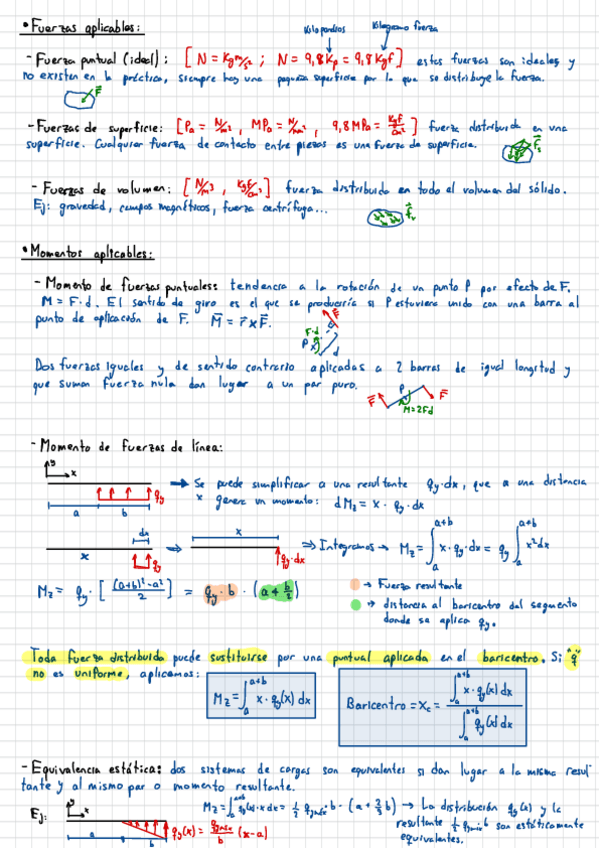 • Fuerzas aplicables:
Kilopondios
Kilogramo fuerza
- Fuerza puntual (ideal): [N = Kg m/s² ; N = 9,8 Kp = 9,8 Kgf] estas fuerzas son ideales y
no existen en la práctica, siempre hay una pequeña superficie por la que se distribuye la fuerza.
F
- Fuerzas de superficie: [Pa = N/m², MPa = N/mm², 9,8 MPa = Kgf/cm²] fuerza distribuida en una
superficie. Cualquier fuerza de contacto entre piezas es una fuerza de superficie.
fs
- Fuerzas de volumen: [N/m³, Kgf/cm³] fuerza distribuida en todo el volumen del sólido.
Ej: gravedad, campos magnéticos, fuerza centrífuga...
fv
• Momentos aplicables:
- Momento de fuerzas puntuales: tendencia a la rotación de un punto P por efecto de F.
M = F·d. El sentido de giro es el que se produciría si P estuviera unido con una barra al
punto de aplicación de F. M = r x F.
F
F·d
P
d
Dos fuerzas iguales y de sentido contrario aplicadas a 2 barras de igual longitud y
que suman fuerza nula dan lugar a un par puro.
F P F
M=2Fd
- Momento de fuerzas de línea:
y
x
qy
a b
→ Se puede simplificar a una resultante qy·dx, que a una distancia
x genere un momento: dMz = x · qy · dx
dx
x
qy
⇒
x
qy·dx
⇒ Integramos → Mz = ∫ₐᵃ⁺ᵇ x·qy·dx = qy ∫ₐᵃ⁺ᵇ x² dx
Mz = qy · [((a+b)² - a²)/2] = qy · b · (a + b/2)
→ Fuerza resultante
→ distancia al baricentro del segmento
donde se aplica qy.
Toda fuerza distribuida puede sustituirse por una puntual aplicada en el baricentro. Si "q"
no es uniforme, aplicamos:
Mz = ∫ₐᵃ⁺ᵇ x · qy(x) dx
Baricentro = Xc = ∫ₐᵃ⁺ᵇ x · qy(x) dx / ∫ₐᵃ⁺ᵇ qy(x) dx
- Equivalencia estática: dos sistemas de cargas son equivalentes si dan lugar a la misma resul
tante y al mismo par o momento resultante.
Ej:
y
x
a b
qy(x) = qymáx/b (x-a)
Mz = ∫ₐᵃ⁺ᵇ qy(x)·x dx = ½ qymáx · b · (a + ⅔ b) → La distribución qy(x) y la
resultante ½ qymáx b son estáticamente
equivalentes.